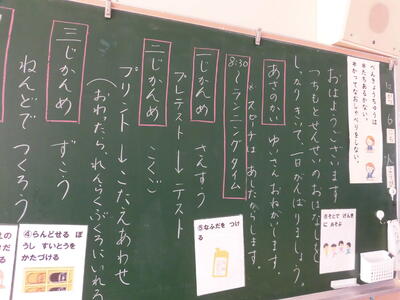 べんきょうちゅうは
*たちあるかない。
*かってなおしゃべりをしない。
おはようございます
つちもとせんせいのおはなしを
しっかりきいて、一日がんばりましょう。
あさのかい ゆいさんおねがいします。
※スピーチは あしたからします。
8:30～ランニングタイム
一じかんめ さんすう
プレテスト→テスト
二じかんめ こくご
プリント→こたえあわせ
(おわったら、れんらくぶくろにいれる
三じかんめ ずこう
ねんどで つくろう
⑥そとで げんき
に あそぶ
⑤なふだを つけ
る
④らんどせる ぼ
うし すいとうを
かたづける